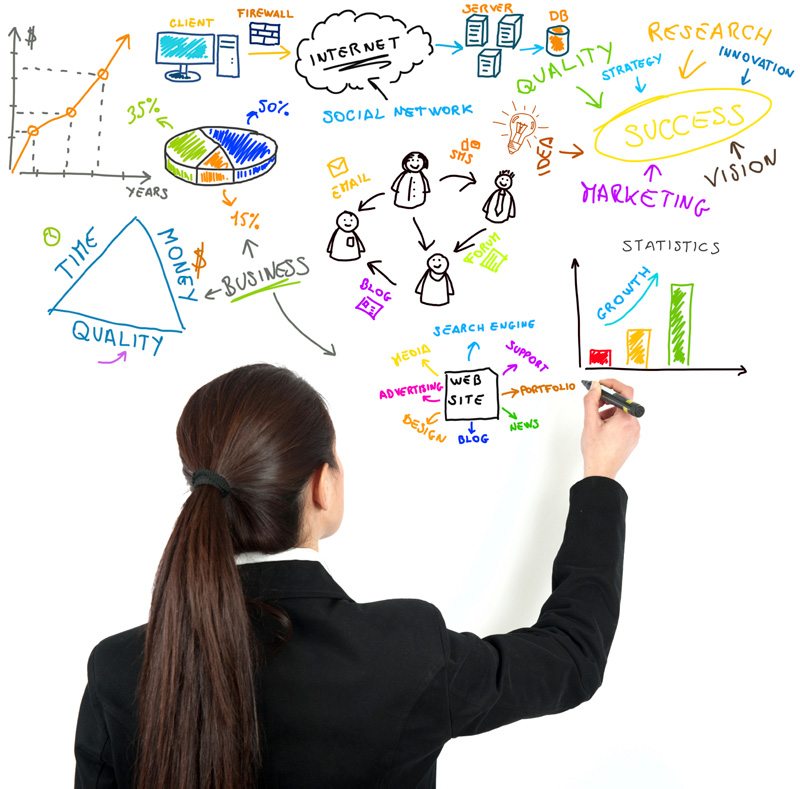 $
YEARS
CLIENT
FIREWALL
INTERNET
SERVER
DB
SOCIAL NETWORK
QUALITY
STRATEGY
RESEARCH
INNOVATION
SUCCESS
IDEA
MARKETING
VISION
35%
50%
15%
EMAIL
SMS
FORUM
BLOG
TIME
MONEY
$
QUALITY
BUSINESS
STATISTICS
GROWTH
SEARCH ENGINE
MEDIA
SUPPORT
ADVERTISING
WEB
SITE
PORTFOLIO
DESIGN
BLOG
NEWS